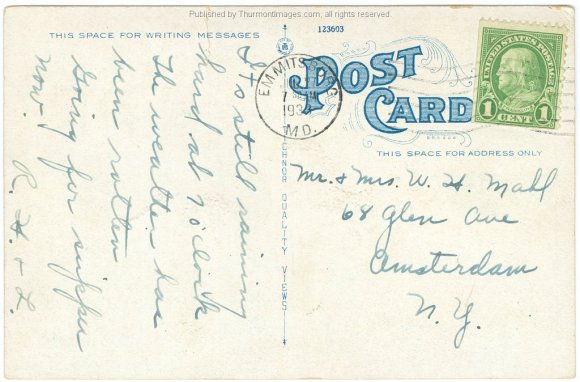 Published by ThurmontImages.com, all rights reserved
THIS SPACE FOR WRITING MESSAGES
123603
POST CARD
EMMITSBURG
7 PM
MD.
UNITED STATES POSTAGE
1 CENT 1
THIS SPACE FOR ADDRESS ONLY
It's still raining
hard at 7 o'clock
The weather has
been rotten
Going for supper
now.
R. H. + L.
Mr. & Mrs. W. H. Mahl
68 Glen Ave
Amsterdam
N.Y.
QUALITY VIEWS